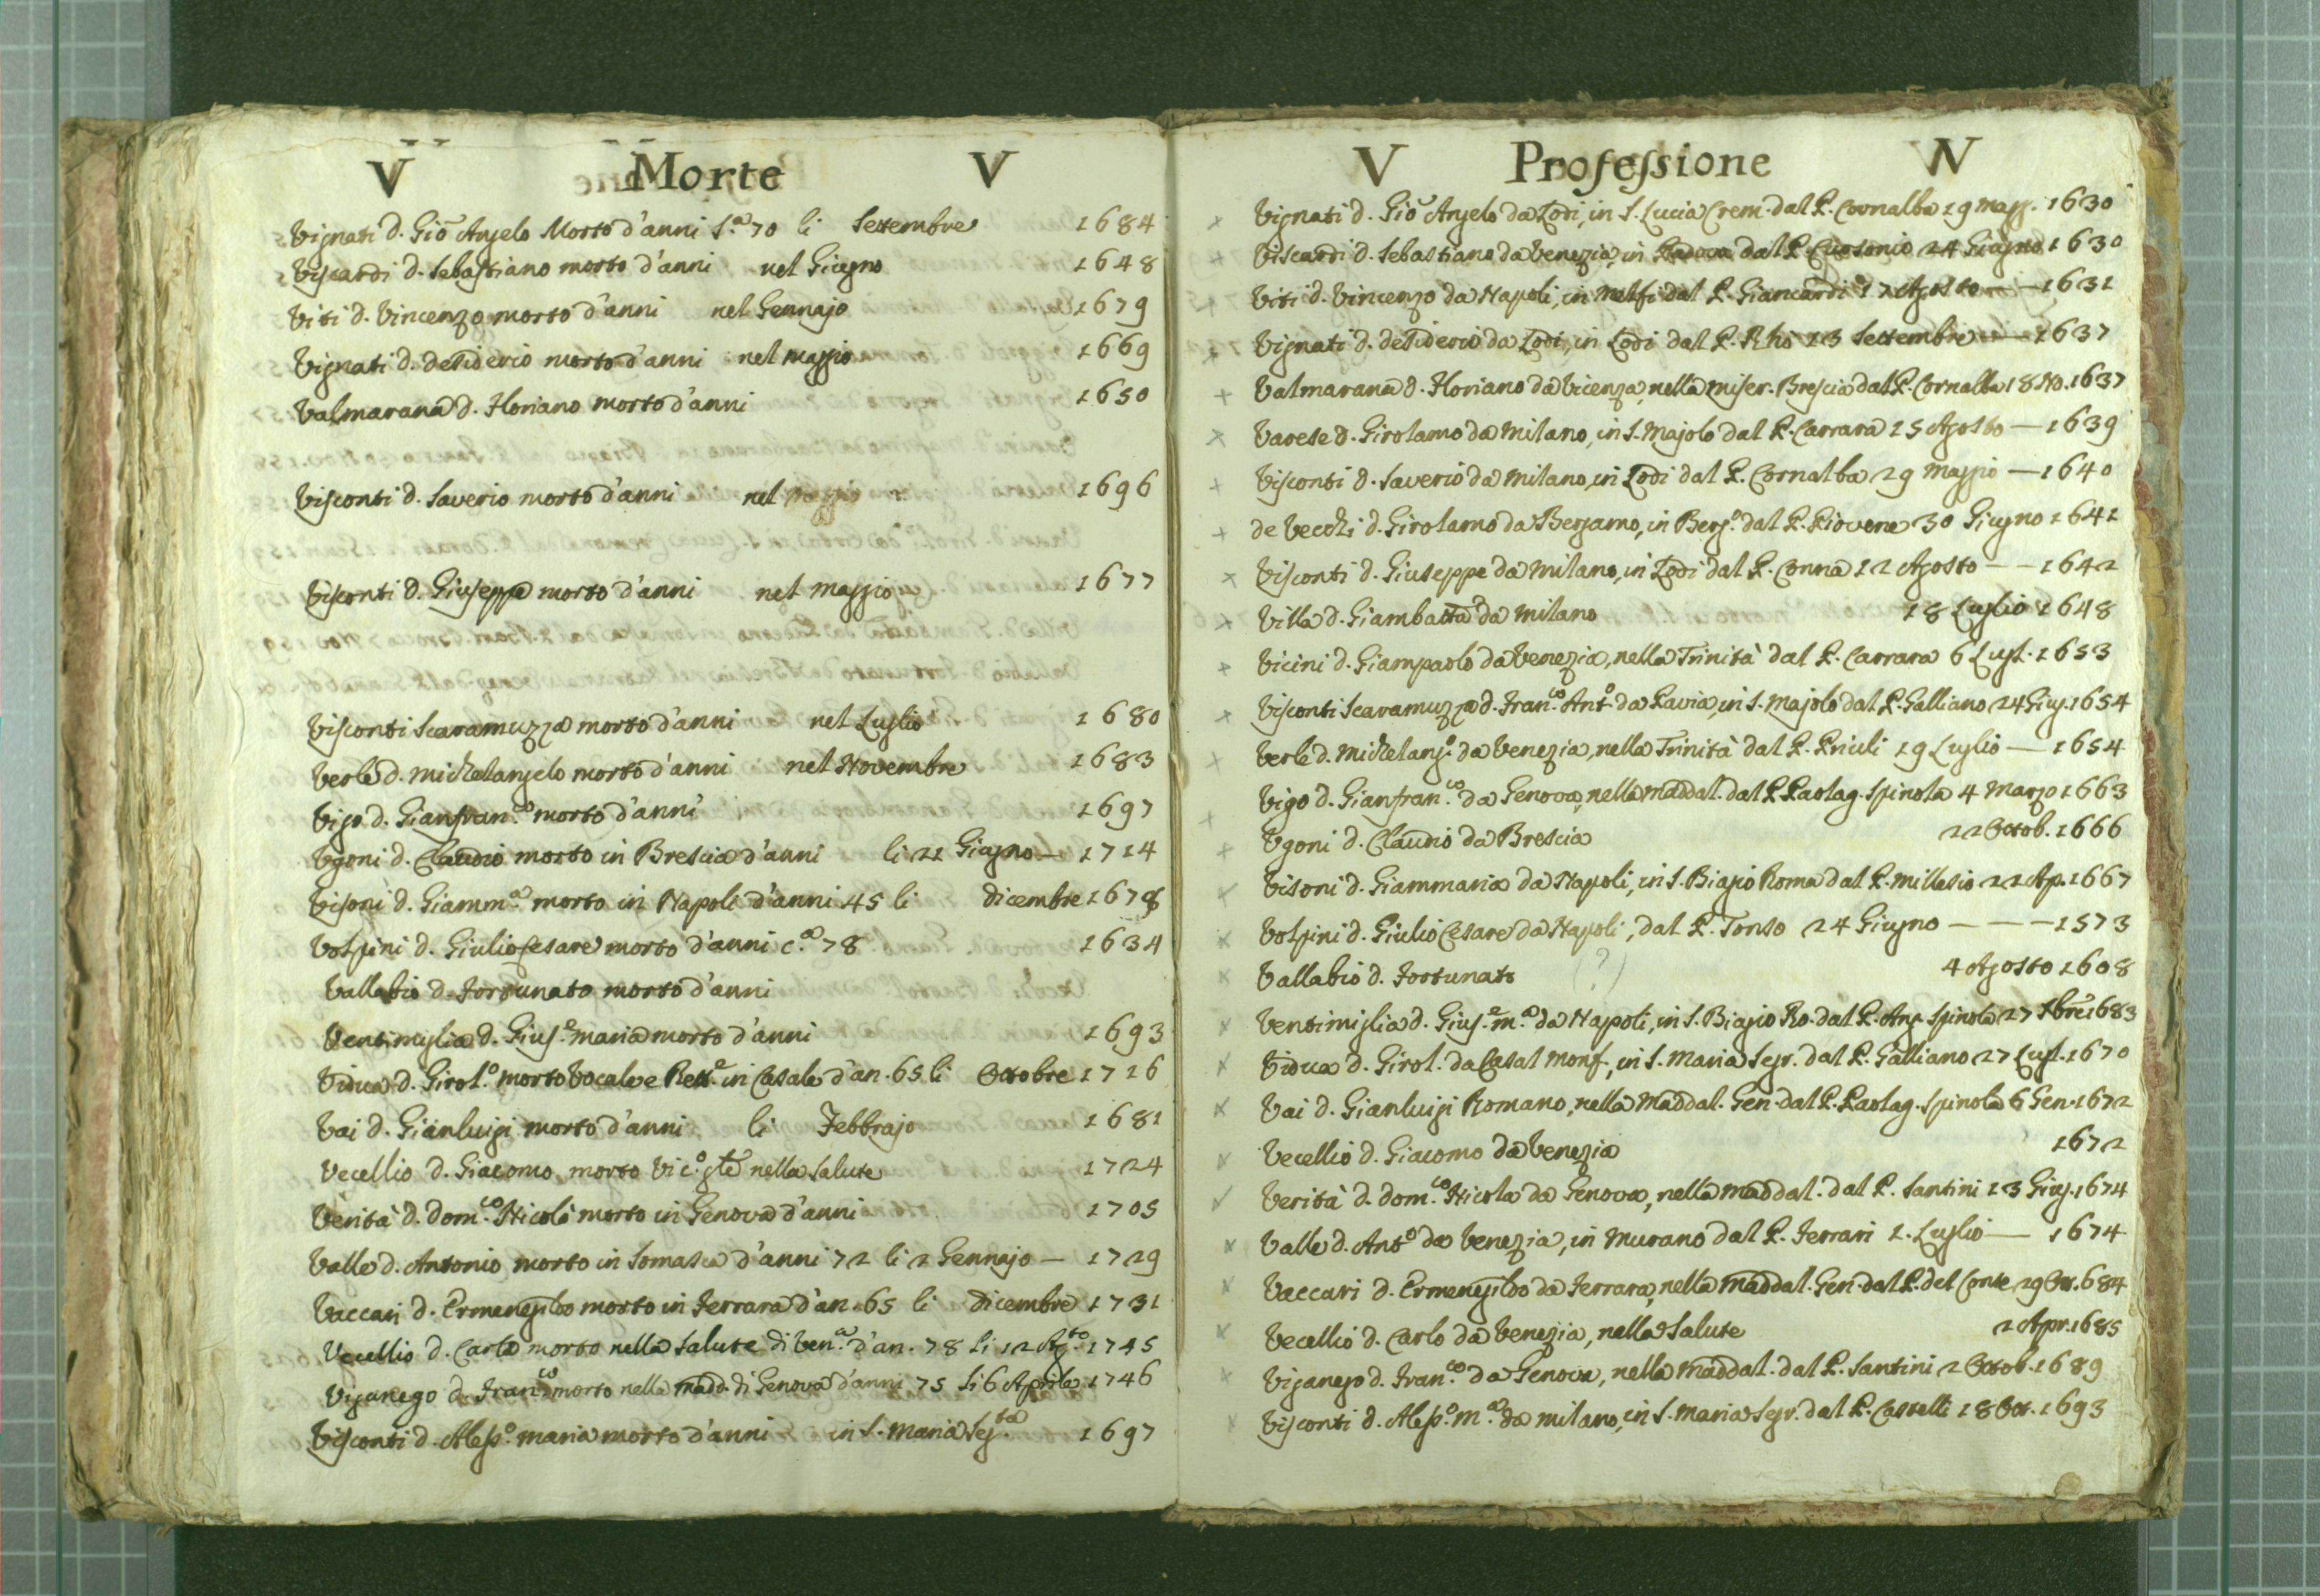 V Morte V
Vignati d. Gio. Angelo Morto d'anni s.ª 70 li Settembre 1684
Viscardi d. Sebastiano morto d'anni nel Giugno 1648
Viti d. Vincenzo morto d'anni nel Gennajo 1679
Vignati d. desiderio morto d'anni nel maggio 1669
Valmarana d. Floriano morto d'anni 1650
Visconti d. Saverio morto d'anni nel Maggio 1696
Visconti d. Giuseppe morto d'anni nel maggio 1677
Visconti Scaramuzza morto d'anni nel Luglio 1680
Verle d. Michelangelo morto d'anni nel Novembre 1683
Vigo d. Gianfran.co morto d'anni 1697
Vgoni d. Claudio morto in Brescia d'anni li 21 Giugno — 1714
Visoni d. Giamm.ª morto in Napoli d'anni 45 li dicembre 1678
Volpini d. Giulio Cesare morto d'anni c.ª 78 1634
Vallabio d. Fortunato morto d'anni
Ventimiglia d. Gius.e maria morto d'anni 1693
Vidua d. Girol.º morto Vocale e Rett.e in Casale d'an. 65 li Ottobre 1716
Vai d. Gianluigi morto d'anni li Febbrajo 1681
Vecellio d. Giacomo morto Vic.º gle nella Salute 1724
Verità d. Dom.co Nicolò morto in Genova d'anni 1705
Valle d. Antonio morto in Somasca d'anni 72 li 2 Gennajo — 1729
Vaccari d. Ermenegildo morto in Ferrara d'an. 65 li dicembre 1731
Vecellio d. Carlo morto nella Salute di Ven.ª d'an. 78 li 12 Ag.to 1745
Viganego d. Fran.co morto nella madd. di Genova d'anni 75 li 6 Aprile 1746
Visconti d. Aless.º maria morto d'anni in S. Maria Seg.ta 1697
V Professione V
Vignati d. Gio. Angelo da Lodi, in S. Lucia Crem. dal P. Cornalba 19 magg. 1630
Viscardi d. Sebastiano da Venezia, in Padova dal P. 24 Giugno 1630
Viti d. Vincenzo da Napoli, in Melfi dal P. Giancardi 17 Agosto — 1631
Vignati d. desiderio da Lodi, in Lodi dal P. Rhò 13 Settembre — 1637
Valmarana d. Floriano da Vicenza, nella miser. Brescia dal P. Cornalba 18 No. 1637
Varese d. Girolamo da Milano, in S. Majolo dal P. Carrara 15 Agosto — 1639
Visconti d. Saverio da Milano, in Lodi dal P. Cornalba 29 maggio — 1640
de Vecchi d. Girolamo da Bergamo, in Berg.º dal P. Piovene 30 Giugno 1641
Visconti d. Giuseppe da Milano, in Lodi dal P. Conna 12 Agosto — 1642
Villa d. Giambatta da Milano 18 Luglio 1648
Vicini d. Giampaolo da Venezia, nella Trinità dal P. Carrara 6 Lugl. 1653
Visconti Scaramuzza d. Fran.co Ant.º da Pavia, in S. Majolo dal P. Galliano 24 Giug. 1654
Verle d. Michelang.º da Venezia, nella Trinità dal P. Priuli 19 Luglio — 1654
Vigo d. Gianfran.co da Genova, nella Maddal. dal P. Paolag. Spinola 4 Marzo 1663
Vgoni d. Claudio da Brescia 22 Ottob. 1666
Visoni d. Giammaria da Napoli, in S. Biagio Roma dal P. Millesio 22 Ap. 1667
Volpini d. Giulio Cesare da Napoli, dal P. Tonso 24 Giugno — — — 1573
Vallabio d. Fortunato (?) 4 Agosto 1608
Ventimiglia d. Gius.e m.ª da Napoli, in S. Biagio Ro. dal P. Ang. Spinola 27 1683
Vidua d. Girol. da Casal Monf., in S. Maria Segr. dal P. Galliano 27 Lugl. 1670
Vai d. Gianluigi Romano, nella Maddal. Gen. dal P. Paolag. Spinola 6 Gen. 1672
Vecellio d. Giacomo da Venezia 1672
Verità d. Dom.co Nicola da Genova, nella Maddal. dal P. Santini 13 Giug. 1674
Valle d. Ant.º da Venezia, in Murano dal P. Ferrari 1. Luglio — 1674
Vaccari d. Ermenegildo da Ferrara, nella Maddal. Gen. dal P. del Conte 29 684
Vecellio d. Carlo da Venezia, nella Salute 2 Apr. 1685
Viganego d. Fran.co da Genova, nella Maddal. dal P. Santini 2 Ottob. 1689
Visconti d. Aless.º m.ª da Milano, in S. Maria Segr. dal P. Castelli 18 Ott. 1693